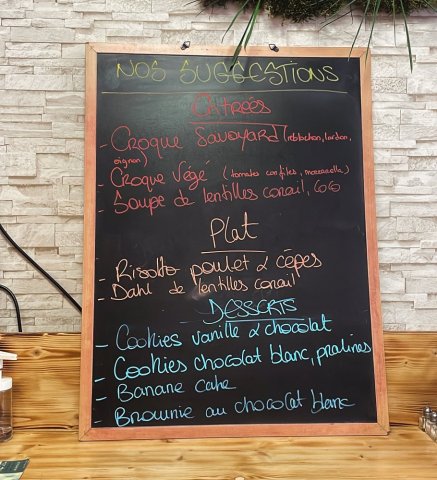 NOS SUGGESTIONS
Entrées
- Croque Savoyard (reblochon, lardon,
oignon)
- Croque Végé (tomates confites, mozzarella)
- Soupe de lentilles corail, coco
Plat
- Risotto poulet & cèpes
- Dahl de lentilles corail
DESSERTS
- Cookies vanille & chocolat
- Cookies chocolat blanc, pralines
- Banane cake
- Brownie au chocolat blanc